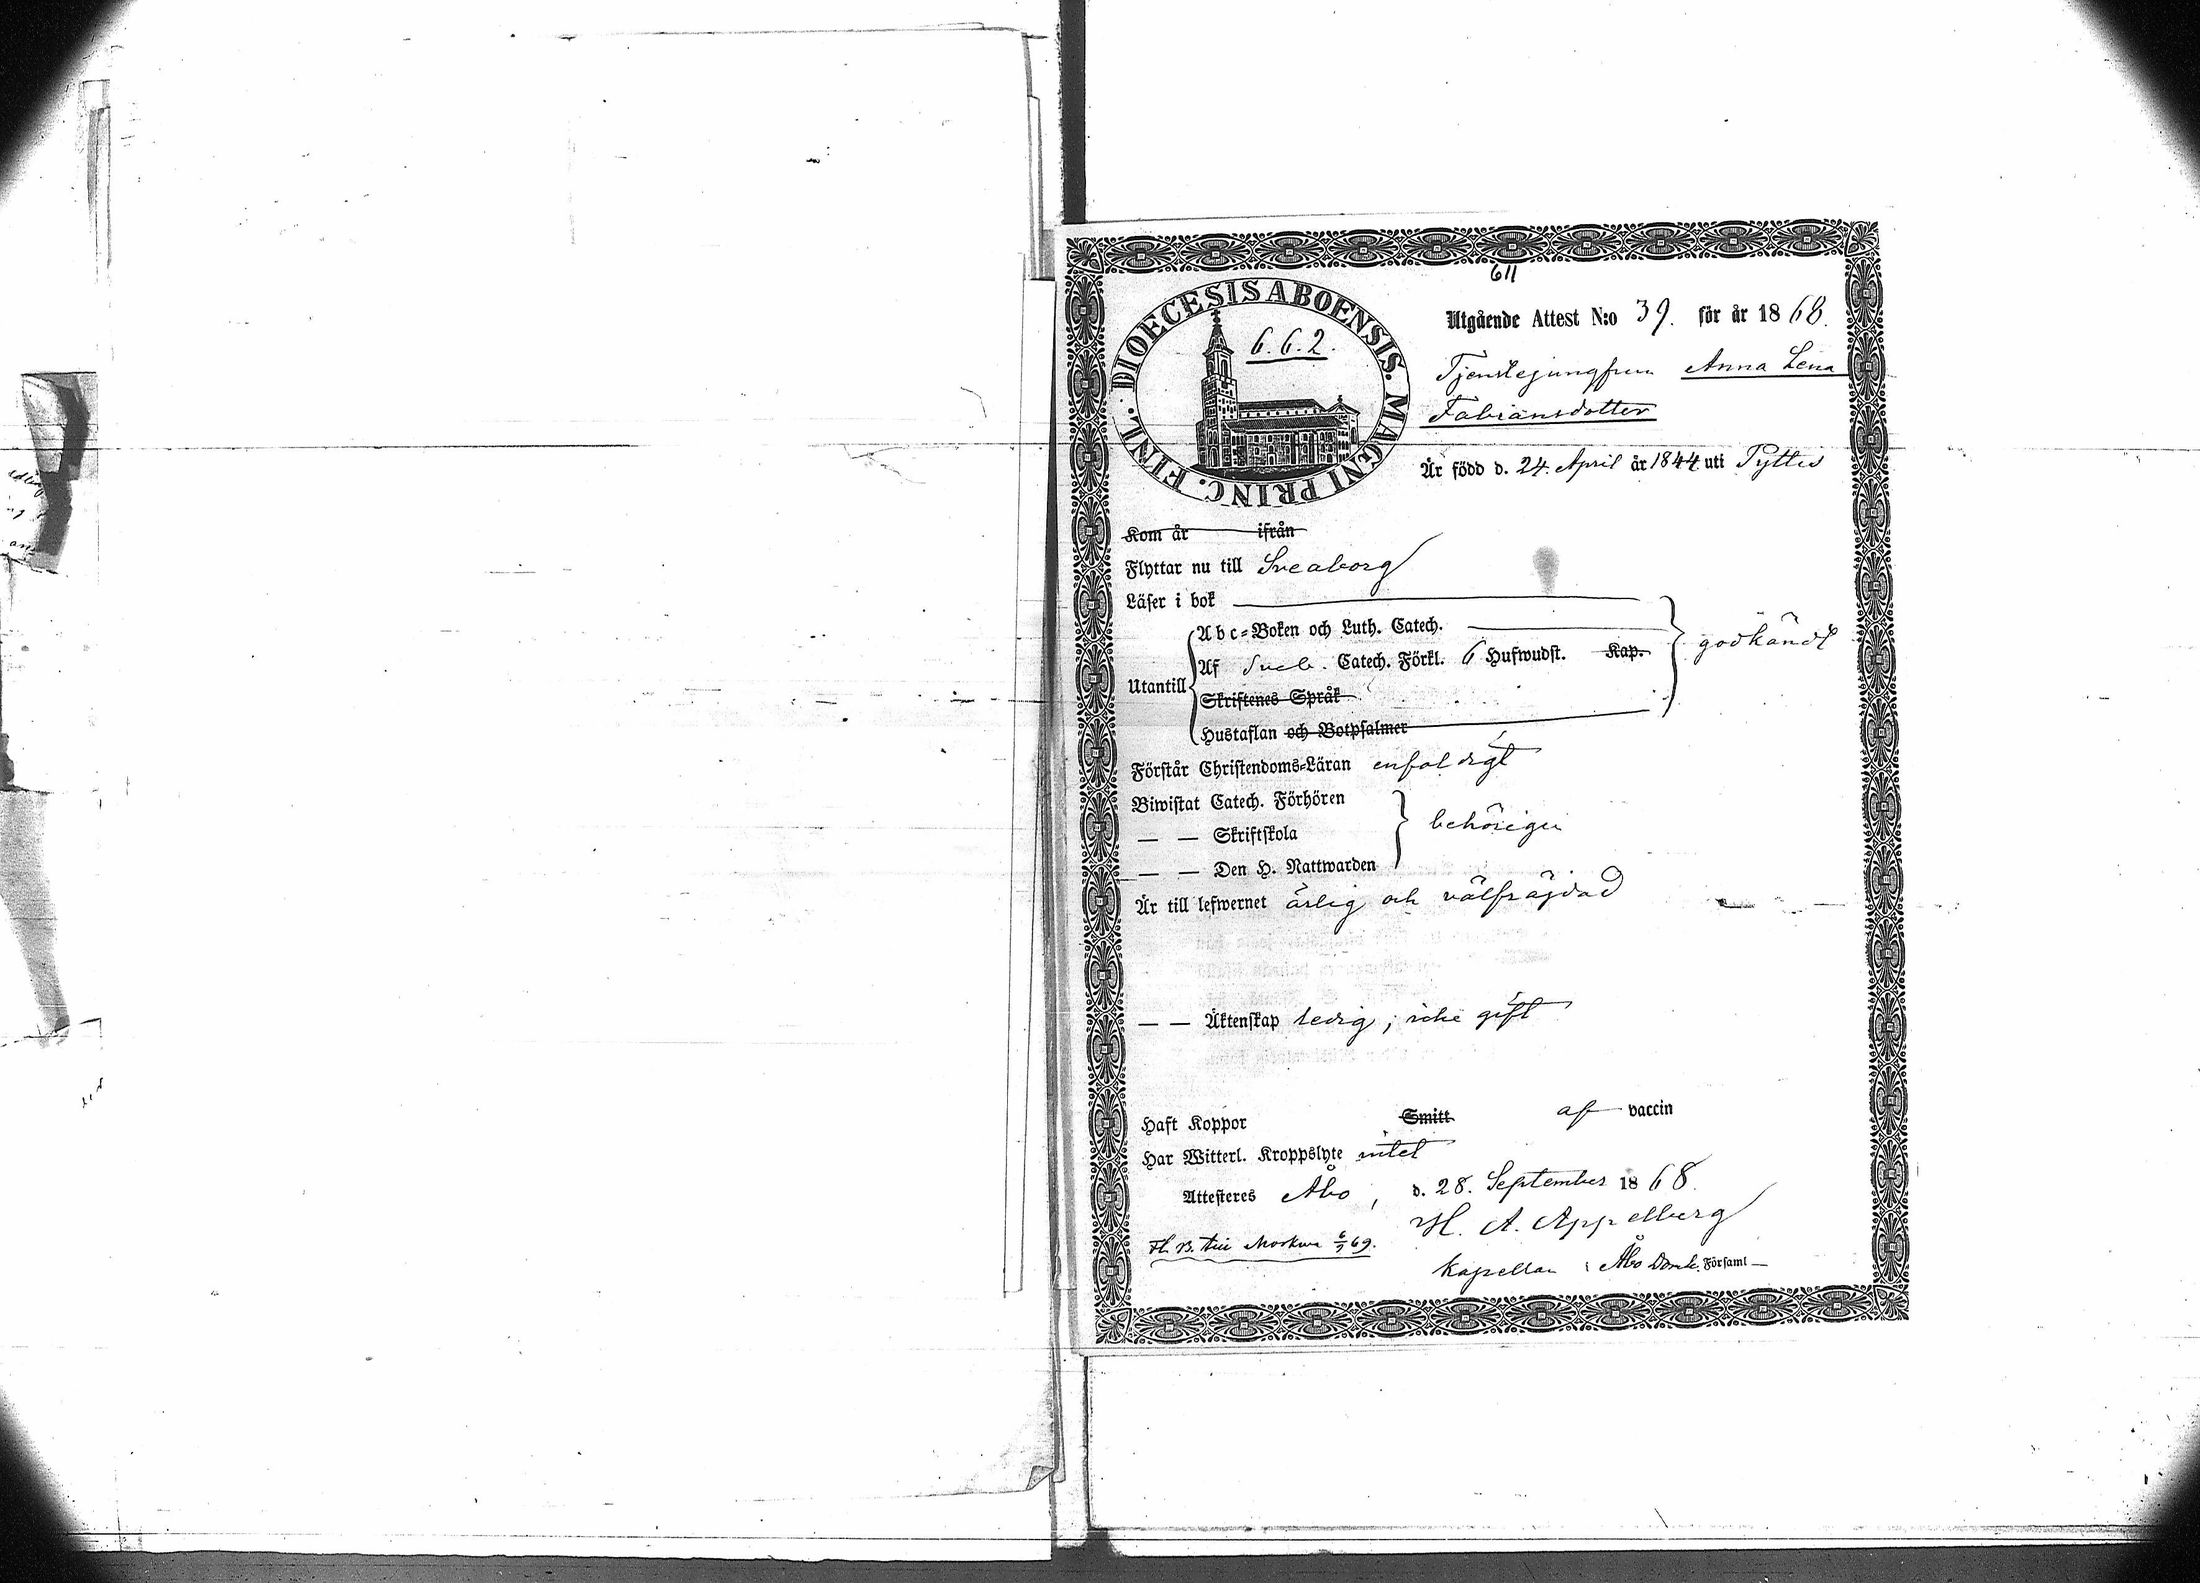 611
DIOECESIS ABOENSIS. MAGNI PRINC. FINL.
6.6.2.
Utgående Attest N:o 39. för år 1868.
Tjenstejungfrun Anna Lena
Fabiansdotter
Är född d. 24. April år 1844 uti Pyttis
Kom år ifrån
Flyttar nu till Sveaborg
Läser i bok
Abc-Boken och Luth. Catech.
Af Sveb. Catech. Förkl. 6 Hufwudst. Kap.
godkändt
Utantill
Skriftenes Språk
Hustaflan och Botpsalmer
Förstår Christendoms-Läran enfaldigt
Biwistat Catech. Förhören
— — Skriftskola
behörigen
— — Den H. Nattwarden
Är till lefwernet ärlig och välfräjdad
— — Äktenskap ledig, icke gift
Haft Koppor Smitt af vaccin
Har Witterl. Kroppslyte intet
Attesteres Åbo, d. 28. September 1868.
H. A. Appelberg
Fl. B. till Moskwa 6/9 69.
Kapellan i Åbo Domk. Församl